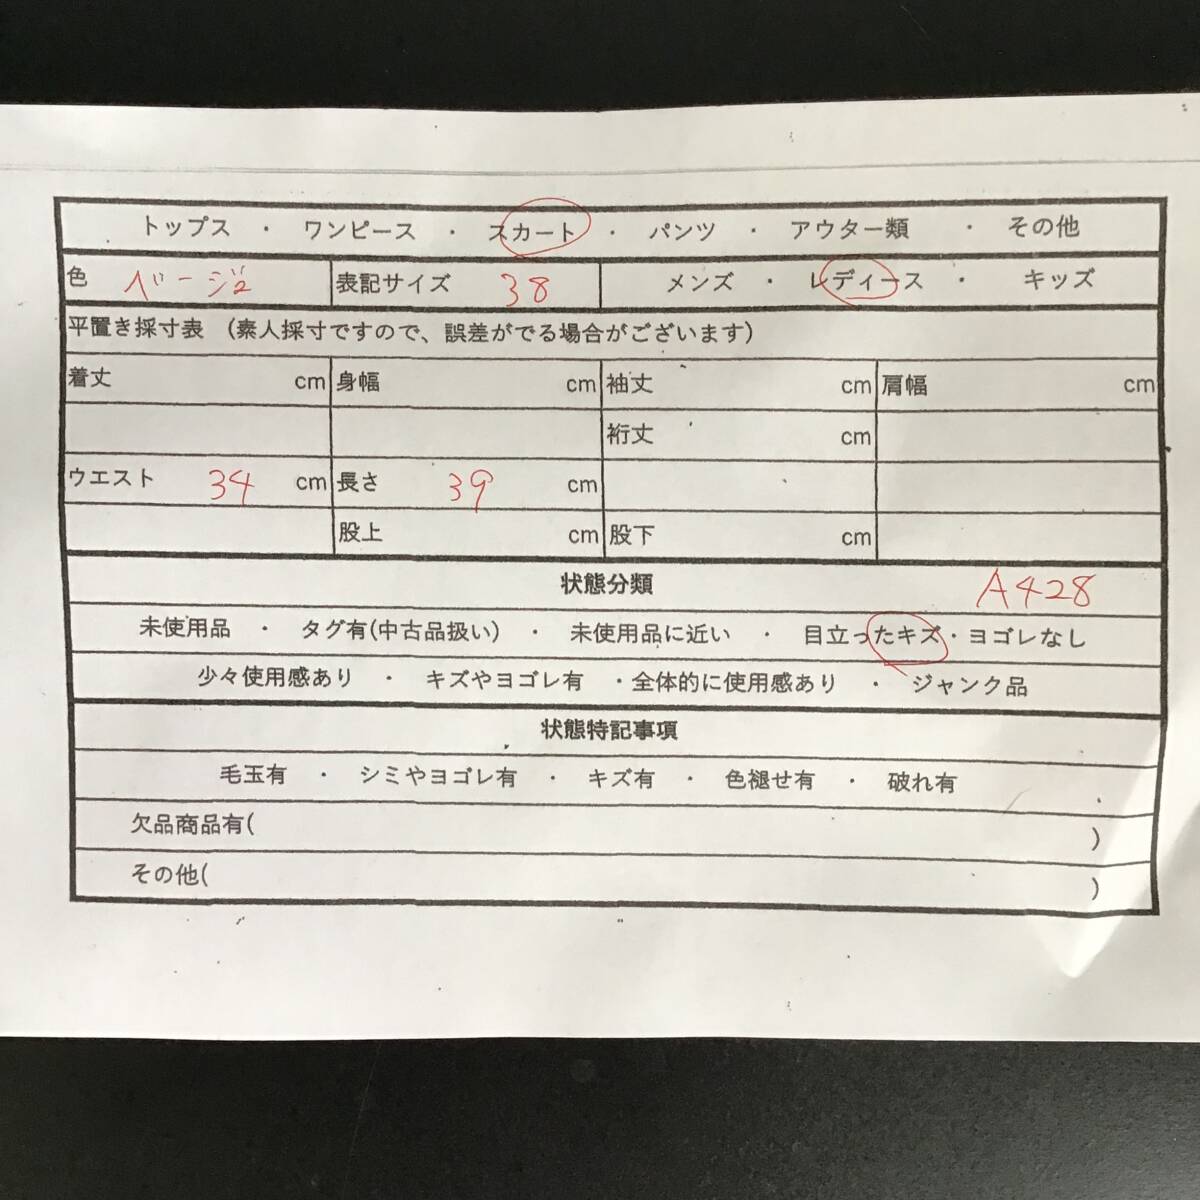 トップス ・ ワンピース ・ スカート ・ パンツ ・ アウター類 ・ その他
色 ベージュ 表記サイズ 38 メンズ ・ レディース ・ キッズ
平置き採寸表 (素人採寸ですので、誤差がでる場合がございます)
着丈 cm 身幅 cm 袖丈 cm 肩幅 cm
裄丈 cm
ウエスト 34 cm 長さ 39 cm
股上 cm 股下 cm
状態分類 A428
未使用品 ・ タグ有(中古品扱い) ・ 未使用品に近い ・ 目立ったキズ・ヨゴレなし
少々使用感あり ・ キズやヨゴレ有 ・全体的に使用感あり ・ ジャンク品
状態特記事項
毛玉有 ・ シミやヨゴレ有 ・ キズ有 ・ 色褪せ有 ・ 破れ有
欠品商品有( )
その他( )